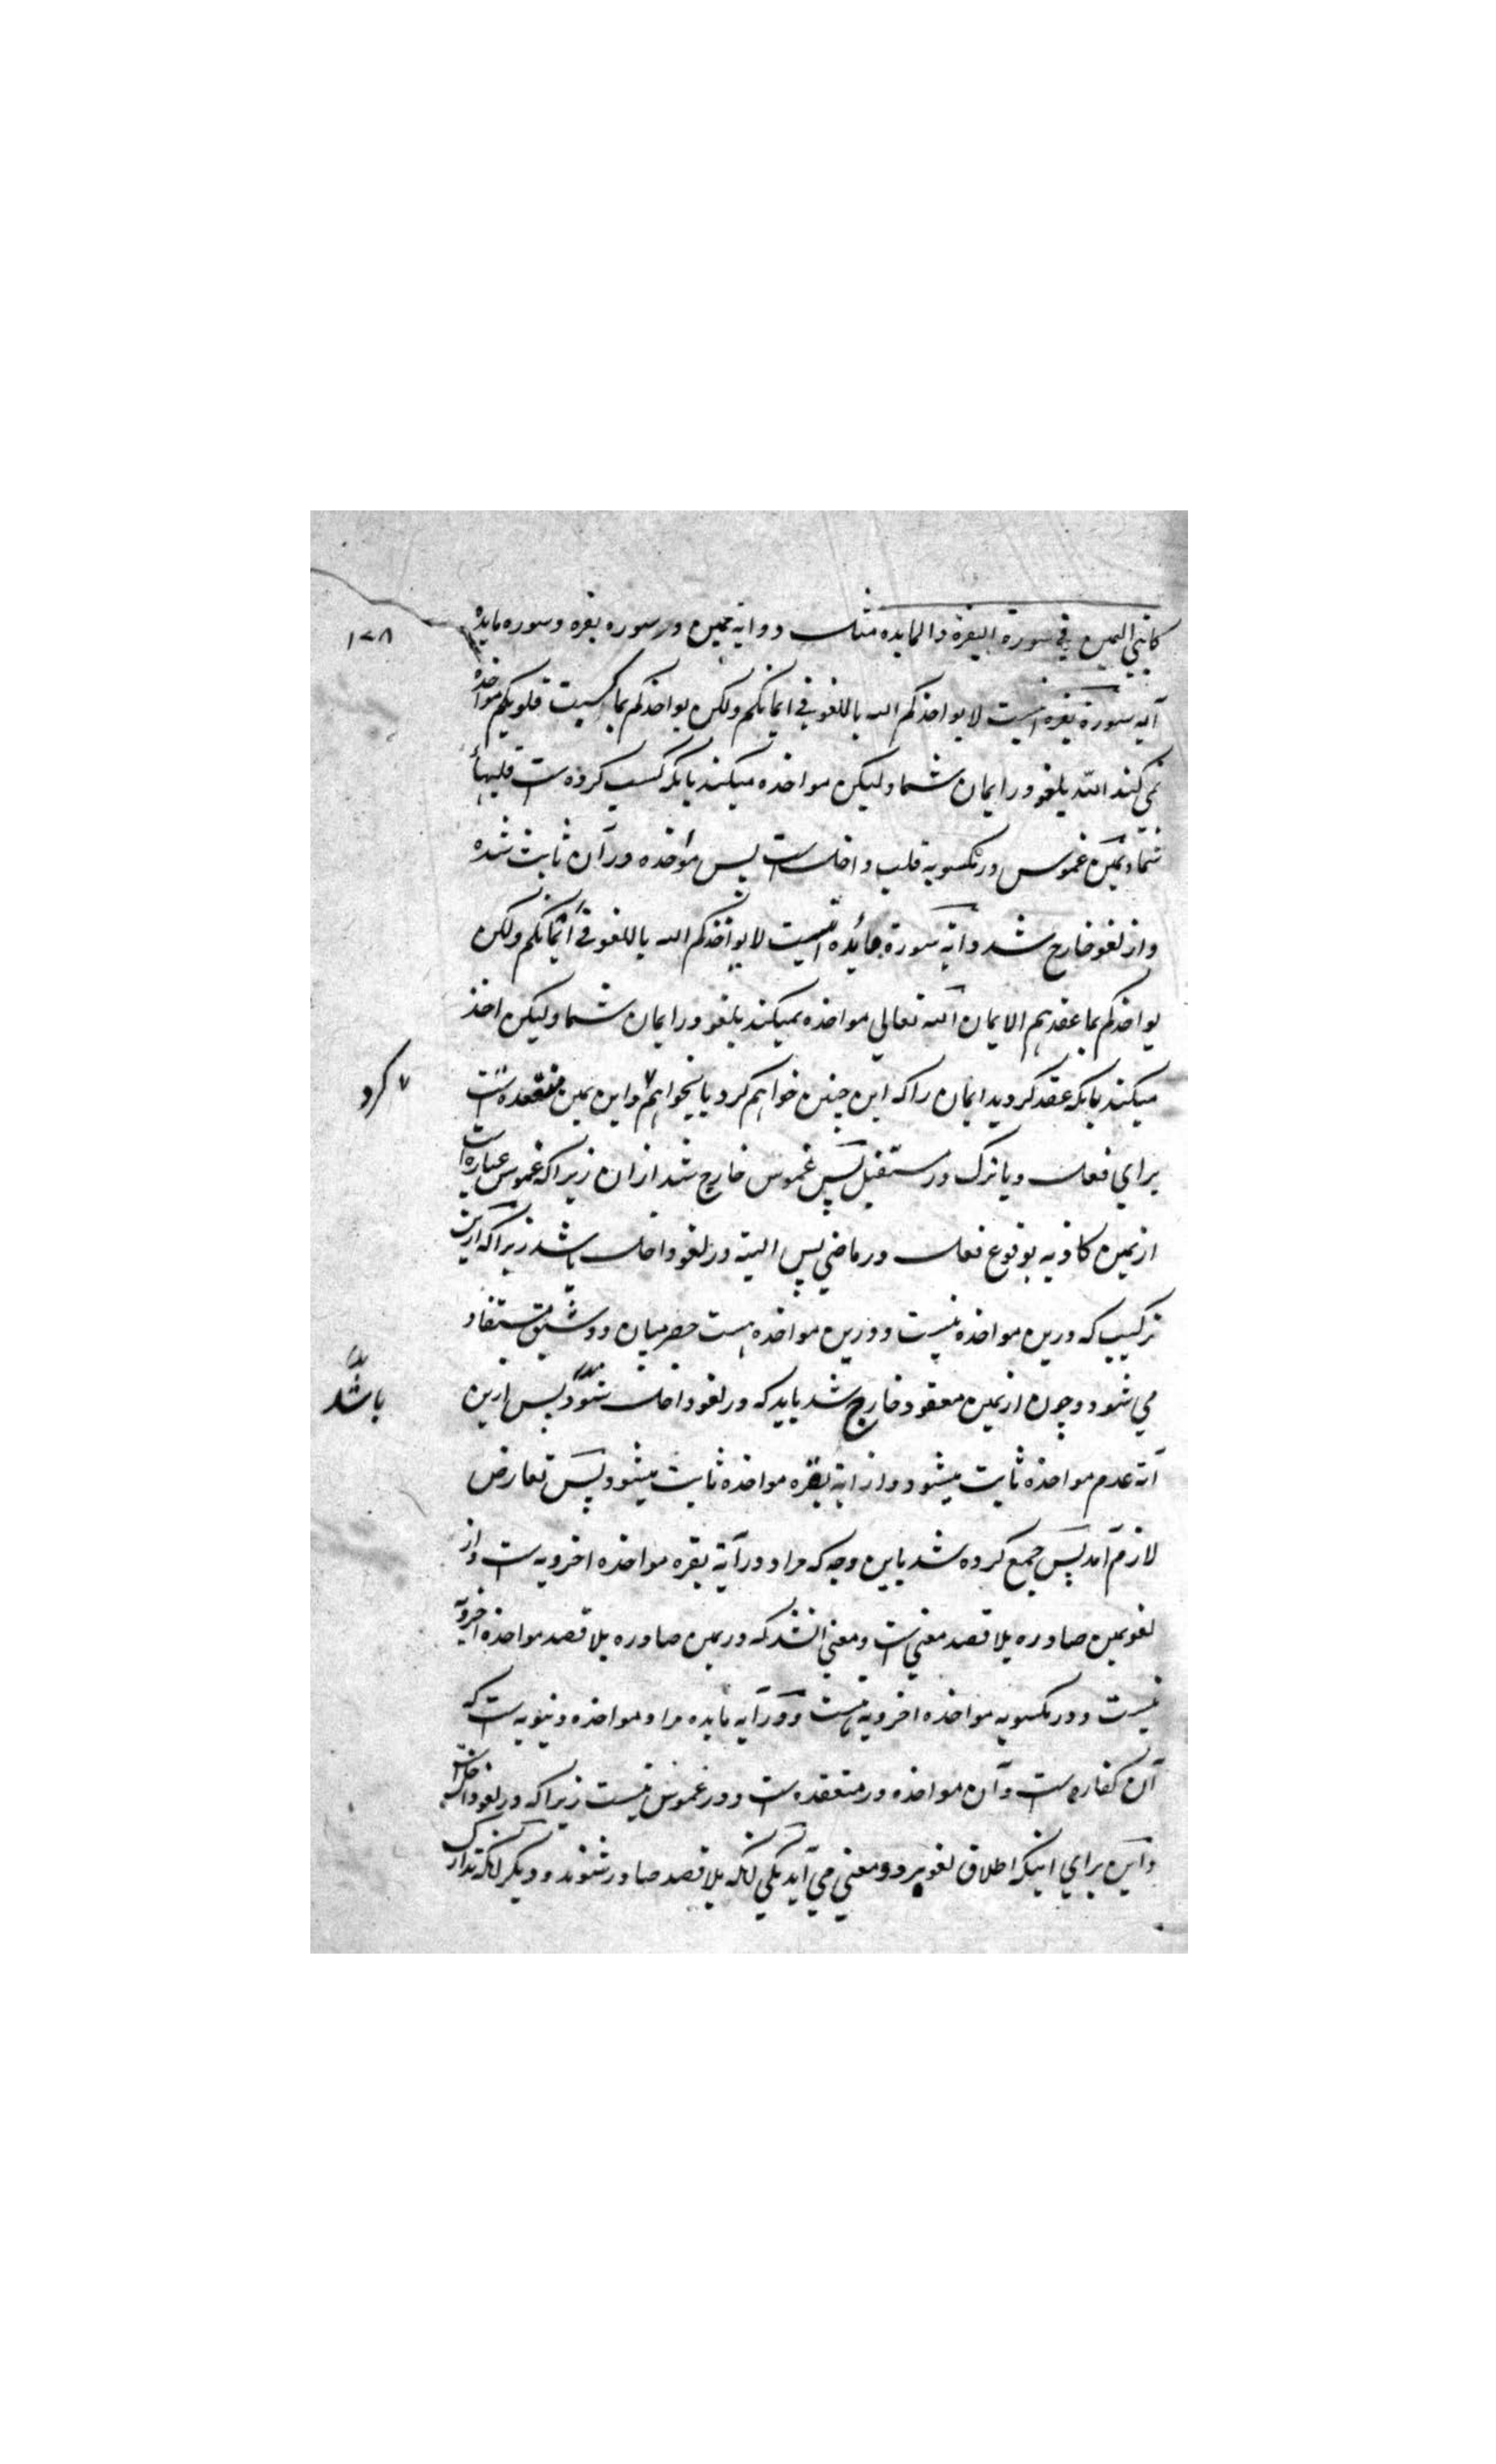 كآيتي اليمين في سورة البقرة والمايده مثل دو ايه يمين در سوره بقره و سوره مايده
١٧٨
آيه سورة بقره اينست لا يواخذكم الله باللغو في ايمانكم ولكن يواخذكم بما كسبت قلوبكم مواخذه
نمي كند الله بلغو در ايمان شما و ليكن مواخذه ميكند بانكه كسب كرده ست قلبهاي
شما و يمين غموس در مكسوبه قلب داخلست پس مواخذه در آن ثابت شده
و از لغو خارج شد و آيه سورة مائده اينست لا يؤاخذكم الله باللغو في أيمانكم ولكن
يواخذكم بما عقدتم الايمان الله تعالي مواخذه نميكند بلغو در ايمان شما و ليكن اخذ
ميكند بانكه عقد كرديد ايمان را كه اين چنين خواهم كرد يا نخواهم ٧ و اين يمين منعقده است
٧ كرد
براي فعل و يا ترك در مستقبل پس غموس خارج شد ازان زيراكه غموس عبارة است
از يمين كاذبه بوقوع فعل در ماضي پس البته در لغو داخل باشد زيراكه ازين
تركيب كه درين مواخذه نيست و درين مواخذه هست حصر ميان دو شق مستفاد
مي شود و چون از يمين معقود خارج شد بايد كه در لغو داخل شود پس ازين
باشد
آيه عدم مواخذه ثابت ميشود و از آية بقره مواخذه ثابت ميشود پس تعارض
لازم آمد پس جمع كرده شد باين وجه كه مراد در آية بقره مواخذه اخرويه ست و از
لغو يمين صادره بلا قصد معني است و معني انشد كه در يمين صادره بلا قصد مواخذه اخرويه
نيست و در مكسوبه مواخذه اخرويه هست و در آيه مايده مراد مواخذه دنيويه ست كه
آن كفاره ست و آن مواخذه در منعقده ست و در غموس نيست زيراكه در لغو داخل است
و اين براي اينكه اطلاق لغو بر دو معني مي آيد يكي آنكه بلا قصد صادر شوند و ديگر آنكه تدارك